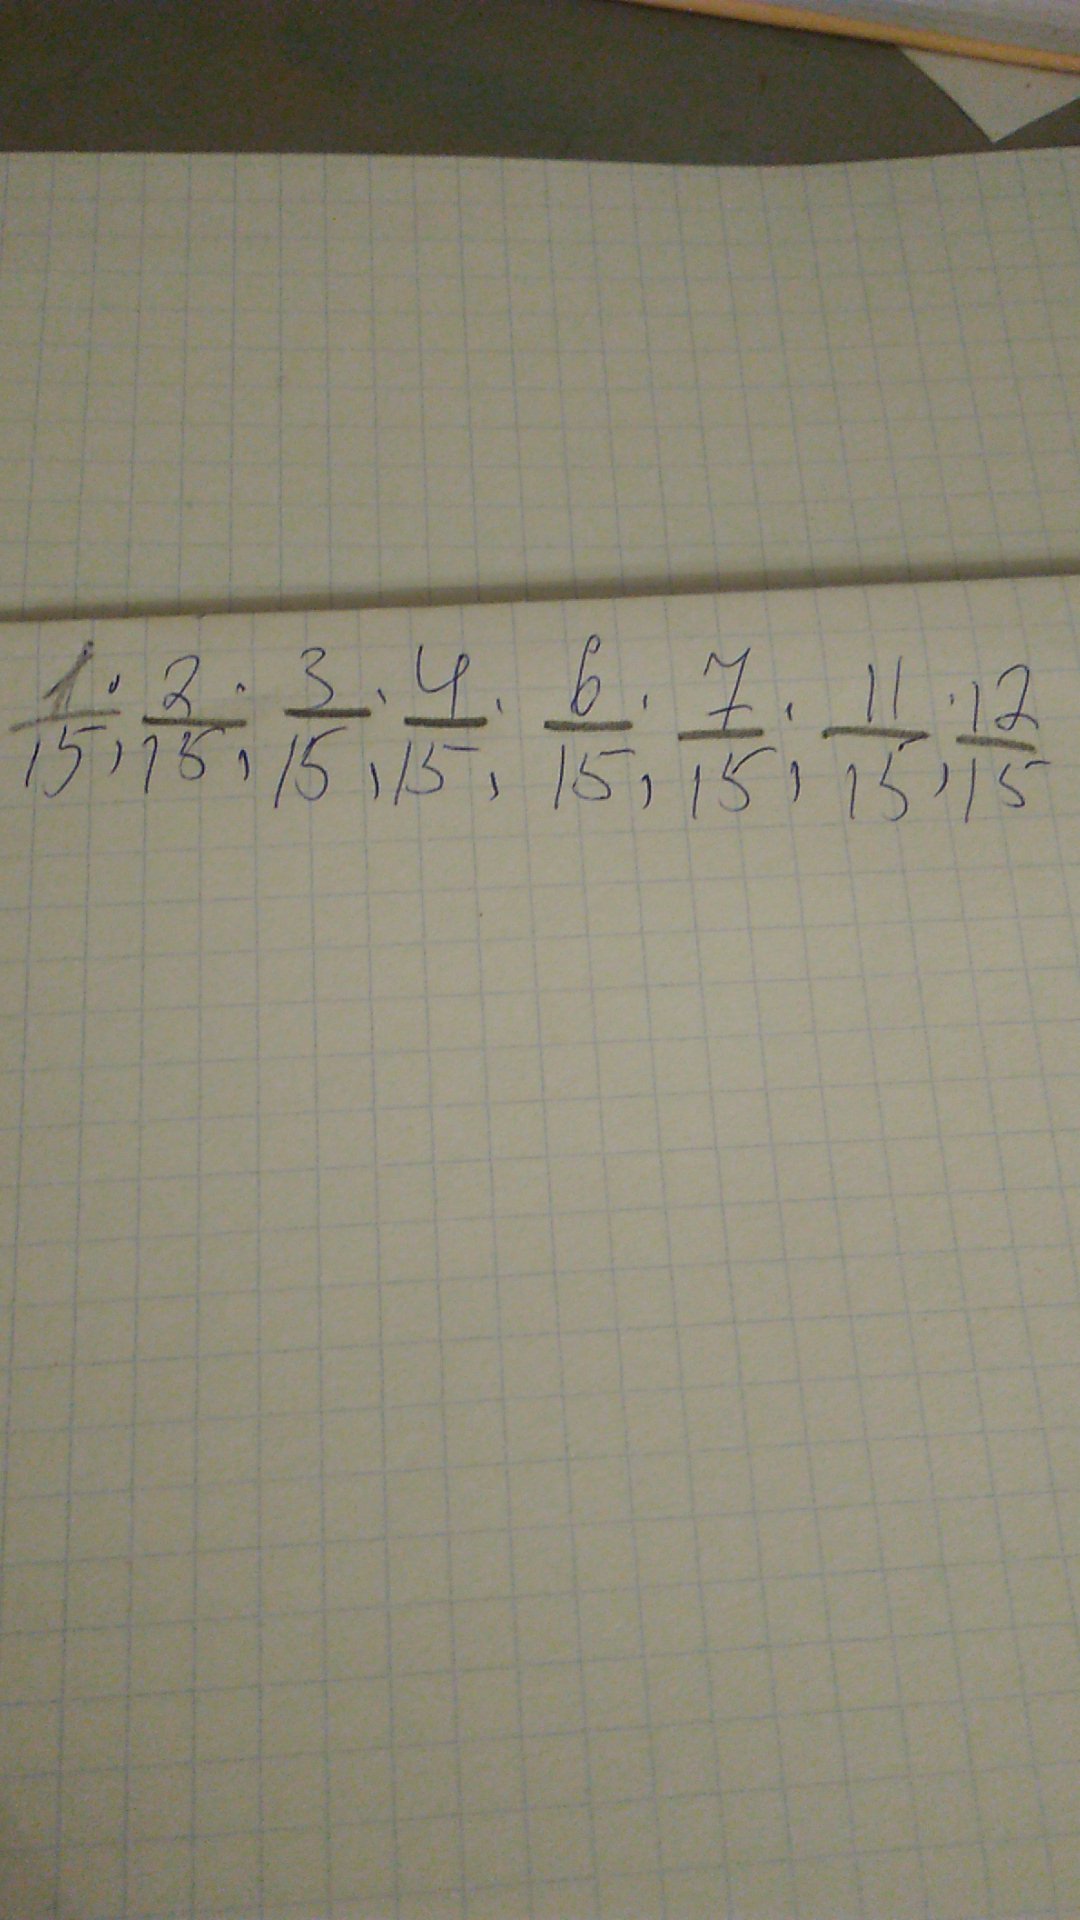 1/15; 2/15; 3/15; 4/15; 6/15; 7/15; 11/15; 12/15